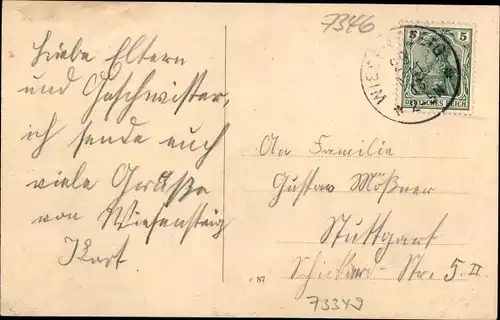 7346
5 5
DEUTSCHES REICH
Liebe Eltern
und Geschwister,
ich sende euch
viele Grüße
von Wiesensteig
Karl
An Familie
Gustav Mößner
Stuttgart
Str. 5 II
c 87
73349